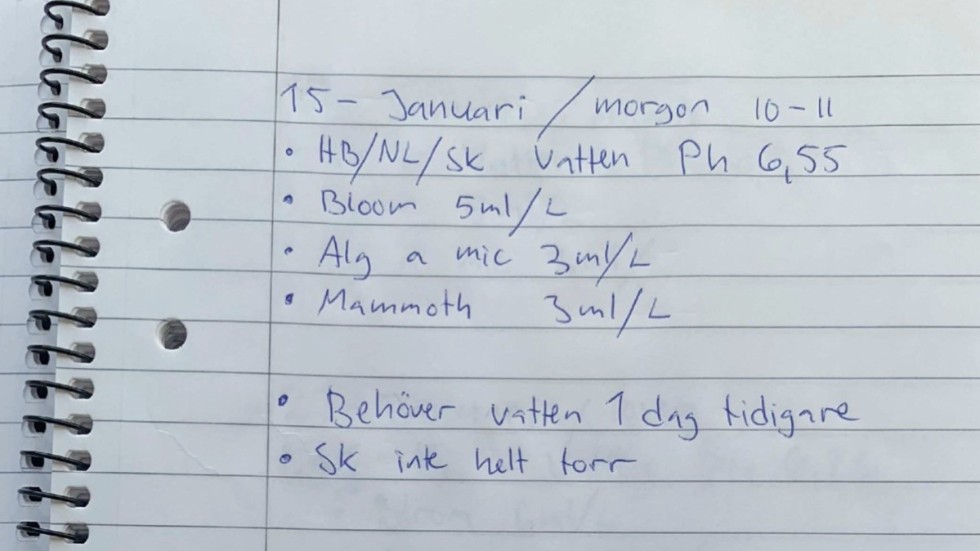 15 - Januari / morgon 10-11
• HB/NL/SK Vatten Ph 6,55
• Bloom 5ml/L
• Alg a mic 3ml/L
• Mammoth 3ml/L
• Behöver vatten 1 dag tidigare
• SK inte helt torr